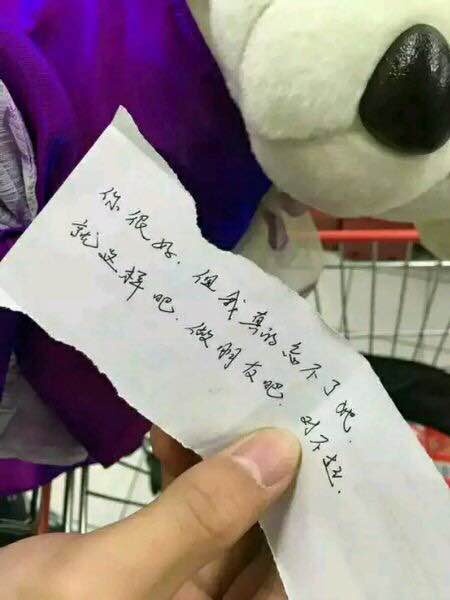 你很好.但我真的忘不了她.
就这样吧.做朋友吧.对不起.